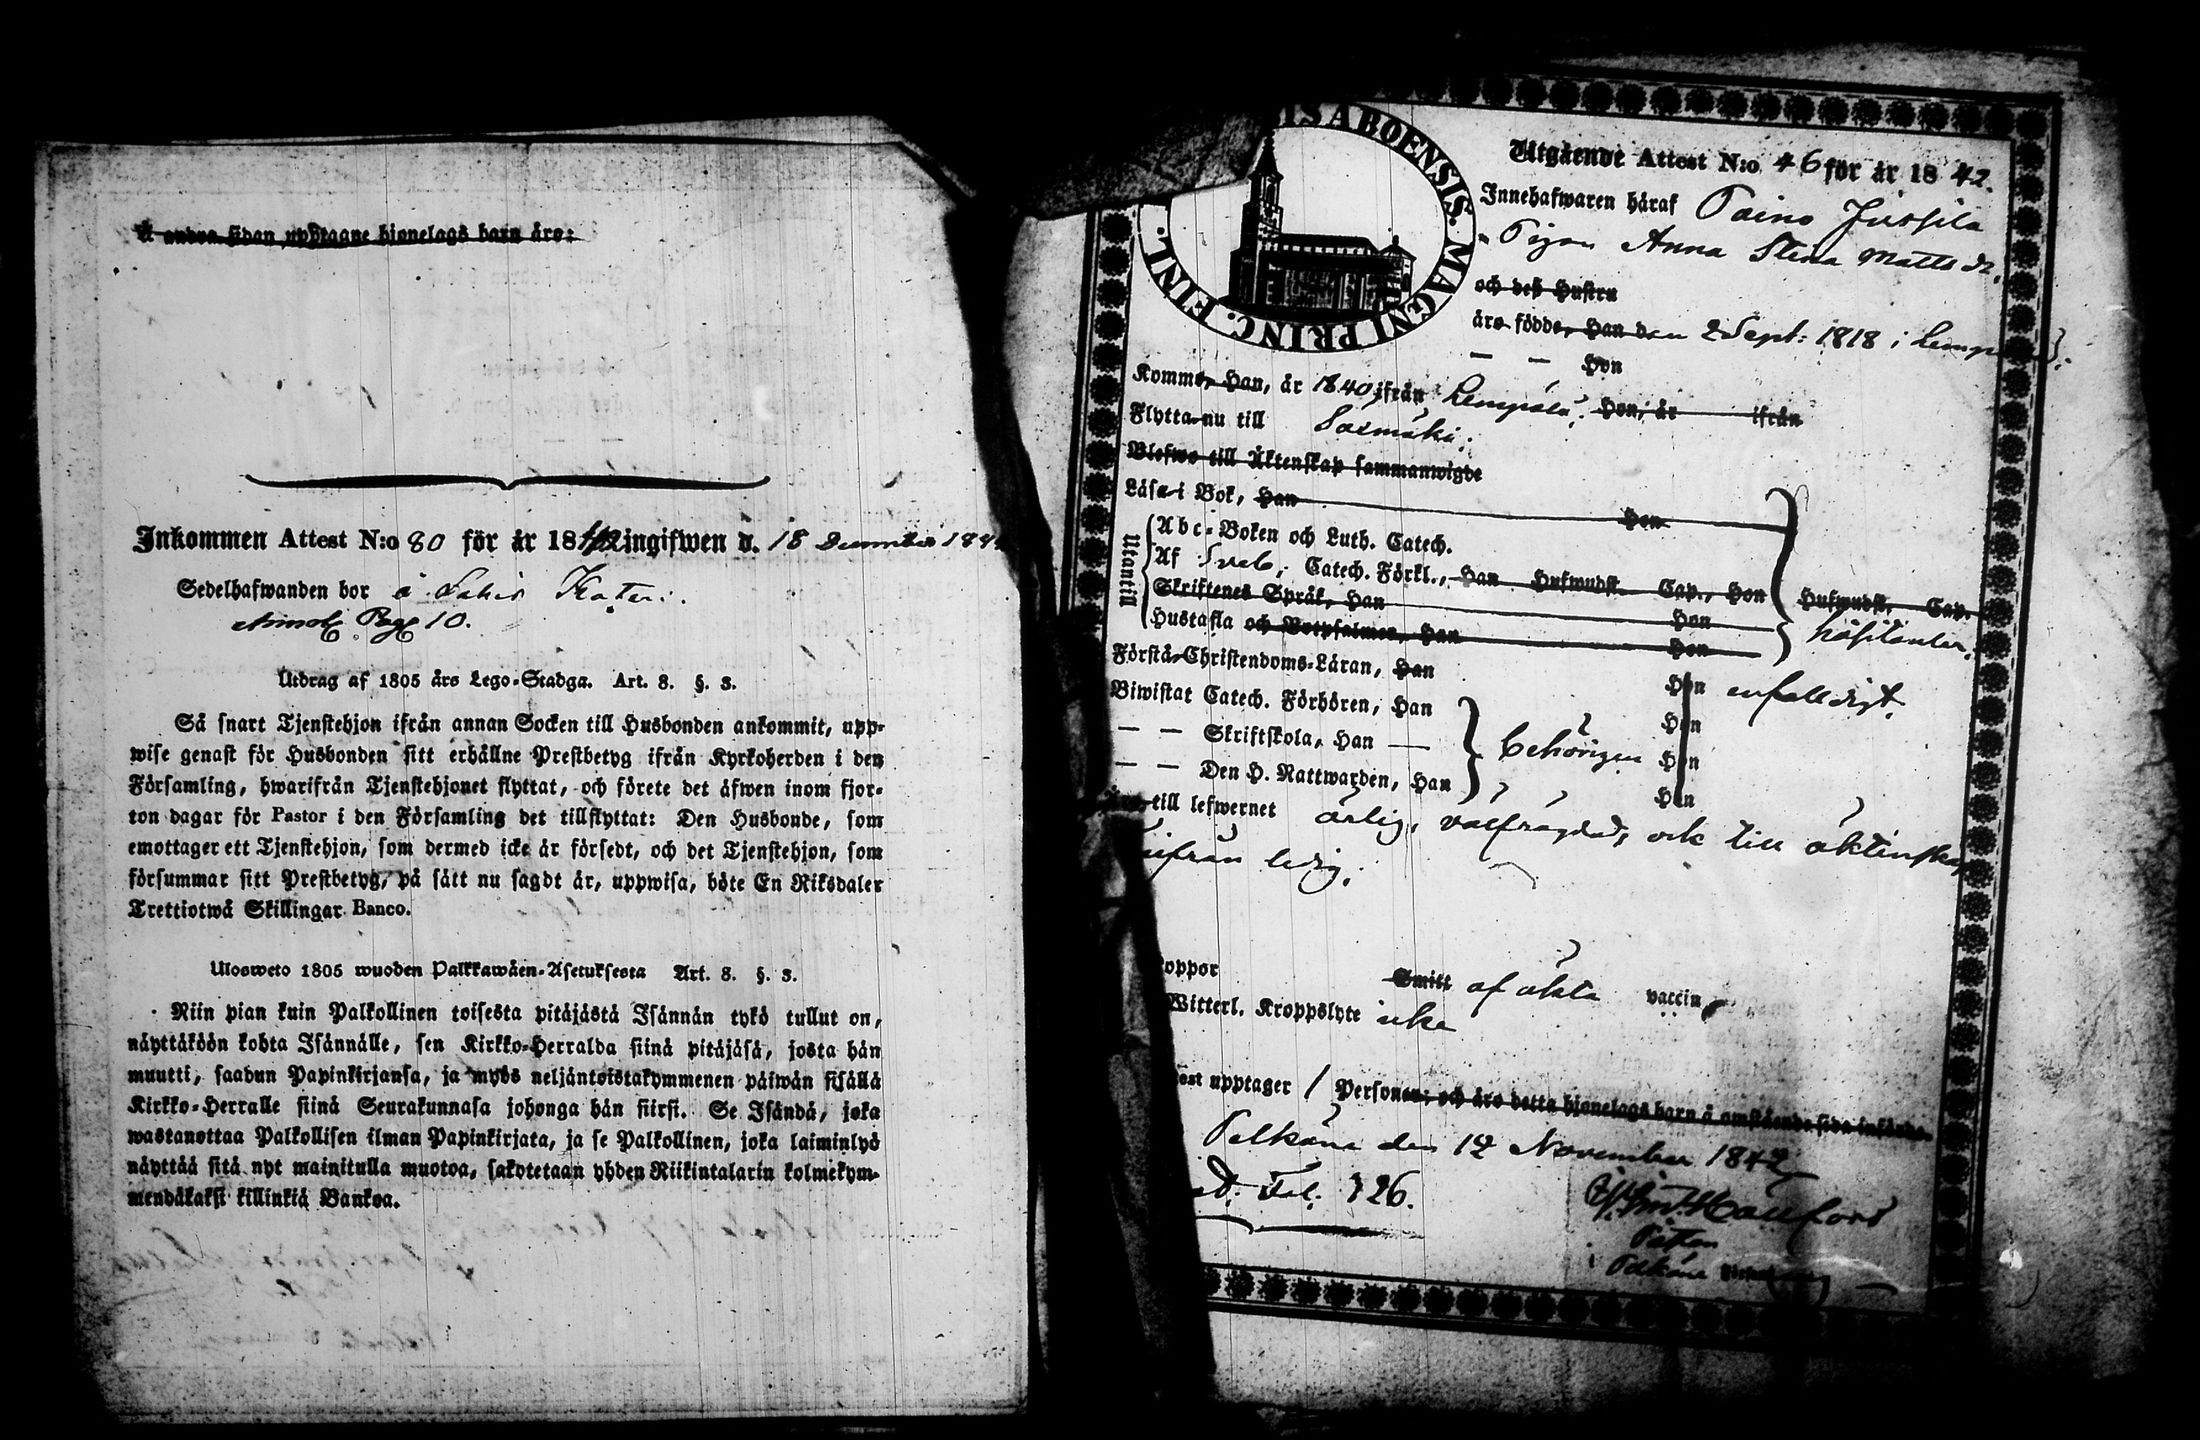 Å andra sidan upptagne hjonelags barn äro:
Inkommen Attest N:o 80 för år 1842 ingifwen d. 18 December 184
Sedelhafwanden bor å
Pag 10.
Utdrag af 1805 års Lego-Stadga. Art. 8. §. 3.
Så snart Tjenstehjon ifrån annan Socken till Husbonden ankommit, upp-
wise genast för Husbonden sitt erhållne Prestbetyg ifrån Kyrkoherden i den
Församling, hwarifrån Tjenstehjonet flyttat, och förete det äfwen inom fjor-
ton dagar för Pastor i den Församling det tillflyttat: Den Husbonde, som
emottager ett Tjenstehjon, som dermed icke är försedt, och det Tjenstehjon, som
försummar sitt Prestbetyg, på sätt nu sagdt är, uppwisa, böte En Riksdaler
Trettiotwå Skillingar Banco.
Ulosweto 1805 wuoden Palkkawäen-Asetuksesta Art. 8. §. 3.
Niin pian kuin Palkollinen toisesta pitäjästä Isännän tykö tullut on,
näyttäköön kohta Isännälle, sen Kirkko-Herralda siinä pitäjäsä, josta hän
muutti, saadun Papinkirjansa, ja myös neljäntoistakymmenen päiwän sisällä
Kirkko-Herralle siinä Seurakunnasa johonga hän siirsi. Se Isändä, joka
wastanottaa Palkollisen ilman Papinkirjata, ja se Palkollinen, joka laiminlyö
näyttää sitä nyt mainitulla muotoa, sakotetaan yhden Riikintalarin kolmekym-
mendäkaksi killinkiä Bankoa.
IS ABOENSIS. MAGNI PRINC. FINL.
Utgående Attest N:o 46 för år 1842.
Innehafwaren häraf Paino Jussila
Pigan Anna Stina Matts dr.
och deß Hustru
äro födde, Han den 2 Sept: 1818 i
— — Hon
Kommo, Han, år 1840 ifrån Lempälä, Hon, år ifrån
Flytta nu till Säxmäki.
Blefwo till Äktenskap sammanwigde
Läsa i Bok, Han Hon
Utantill
Abc-Boken och Luth. Catech.
Af Sveb. Catech. Förkl., Han Hufwudst. Cap., Hon Hufwudst. Cap.
Skriftenes Språk, Han Hon
Hustafla och Botpsalmer, Han Hon
Förstå Christendoms-Läran, Han Hon enfaldigt.
Biwistat Catech. Förhören, Han Hon
— — Skriftskola, Han — behörigen Hon
— — Den H. Nattwarden, Han Hon
till lefwernet ärlig, välfrägdad, och till äktenskap
ledig.
koppor Smitt af äkta vaccin
Witterl. Kroppslyte icke
upptager 1 Personer; och äro detta hjonelags barn å omstående sida införde.
Pelkäne den 12 November 1842
Fol. 326.
Pastor
i Pelkäne